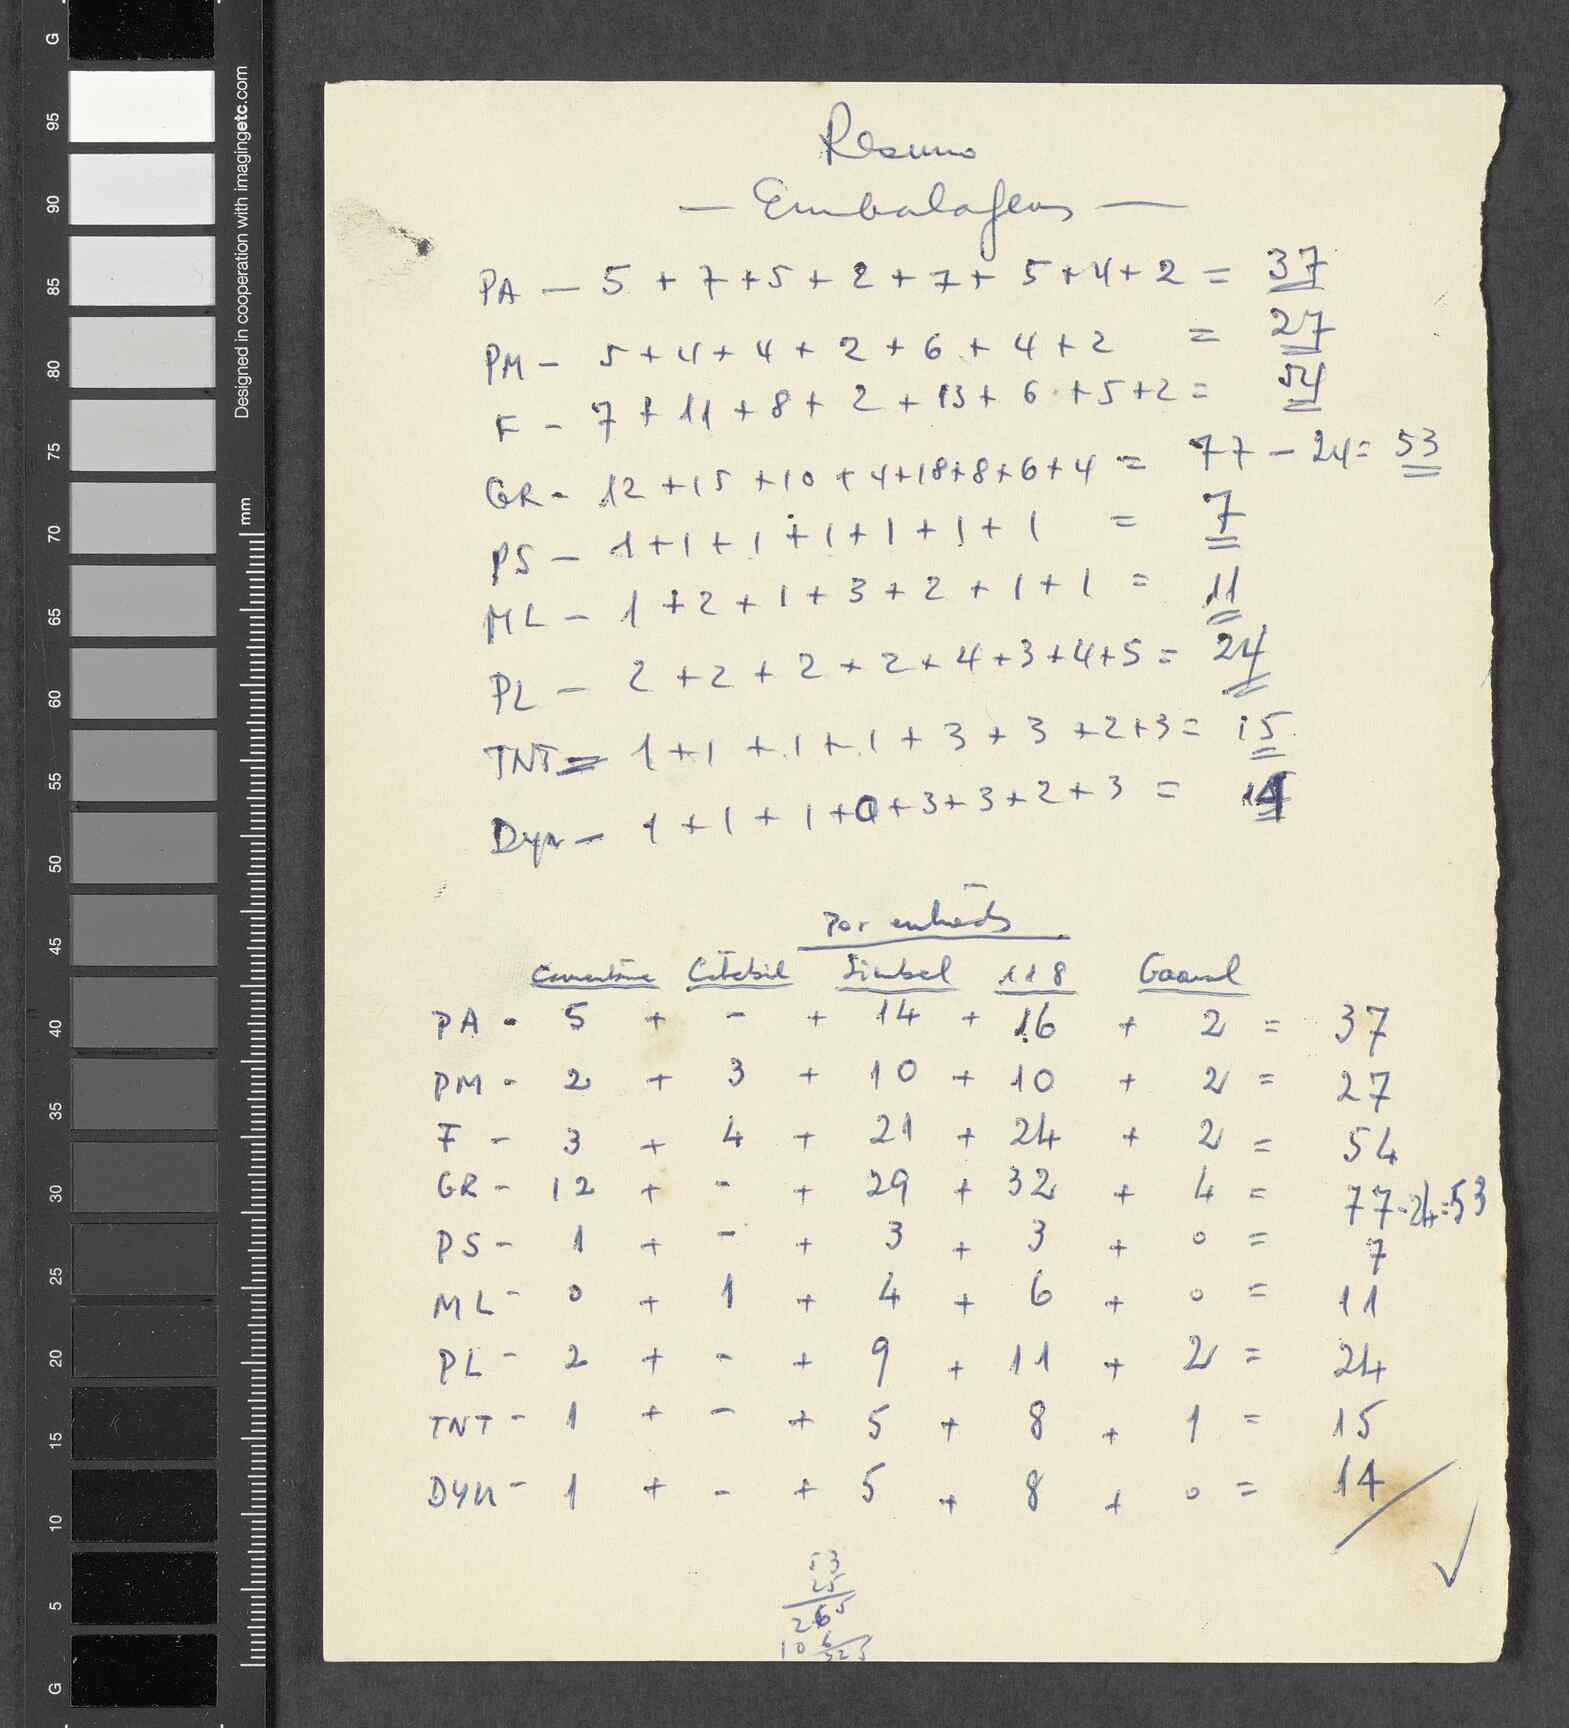 Resumo
— Embalagens —
PA — 5 + 7 + 5 + 2 + 7 + 5 + 4 + 2 = 37
PM — 5 + 4 + 4 + 2 + 6 + 4 + 2 = 27
F — 7 + 11 + 8 + 2 + 13 + 6 + 5 + 2 = 54
GR — 12 + 15 + 10 + 4 + 18 + 8 + 6 + 4 = 77 — 24 = 53
PS — 1 + 1 + 1 + 1 + 1 + 1 + 1 = 7
ML — 1 + 2 + 1 + 3 + 2 + 1 + 1 = 11
PL — 2 + 2 + 2 + 2 + 4 + 3 + 4 + 5 = 24
TNT = 1 + 1 + 1 + 1 + 3 + 3 + 2 + 3 = 15
Dyn — 1 + 1 + 1 + 0 + 3 + 3 + 2 + 3 = 14
Por
118
PA - 5 + - + 14 + 16 + 2 = 37
PM - 2 + 3 + 10 + 10 + 2 = 27
F - 3 + 4 + 21 + 24 + 2 = 54
GR - 12 + - + 29 + 32 + 4 = 77 - 24 = 53
PS - 1 + - + 3 + 3 + 0 = 7
ML - 0 + 1 + 4 + 6 + 0 = 11
PL - 2 + - + 9 + 11 + 2 = 24
TNT - 1 + - + 5 + 8 + 1 = 15
DYN - 1 + - + 5 + 8 + 0 = 14
53
25
265
106
Designed in cooperation with imagingetc.com
mm
G
95
90
85
80
75
70
65
60
55
50
45
40
35
30
25
20
15
10
5
G